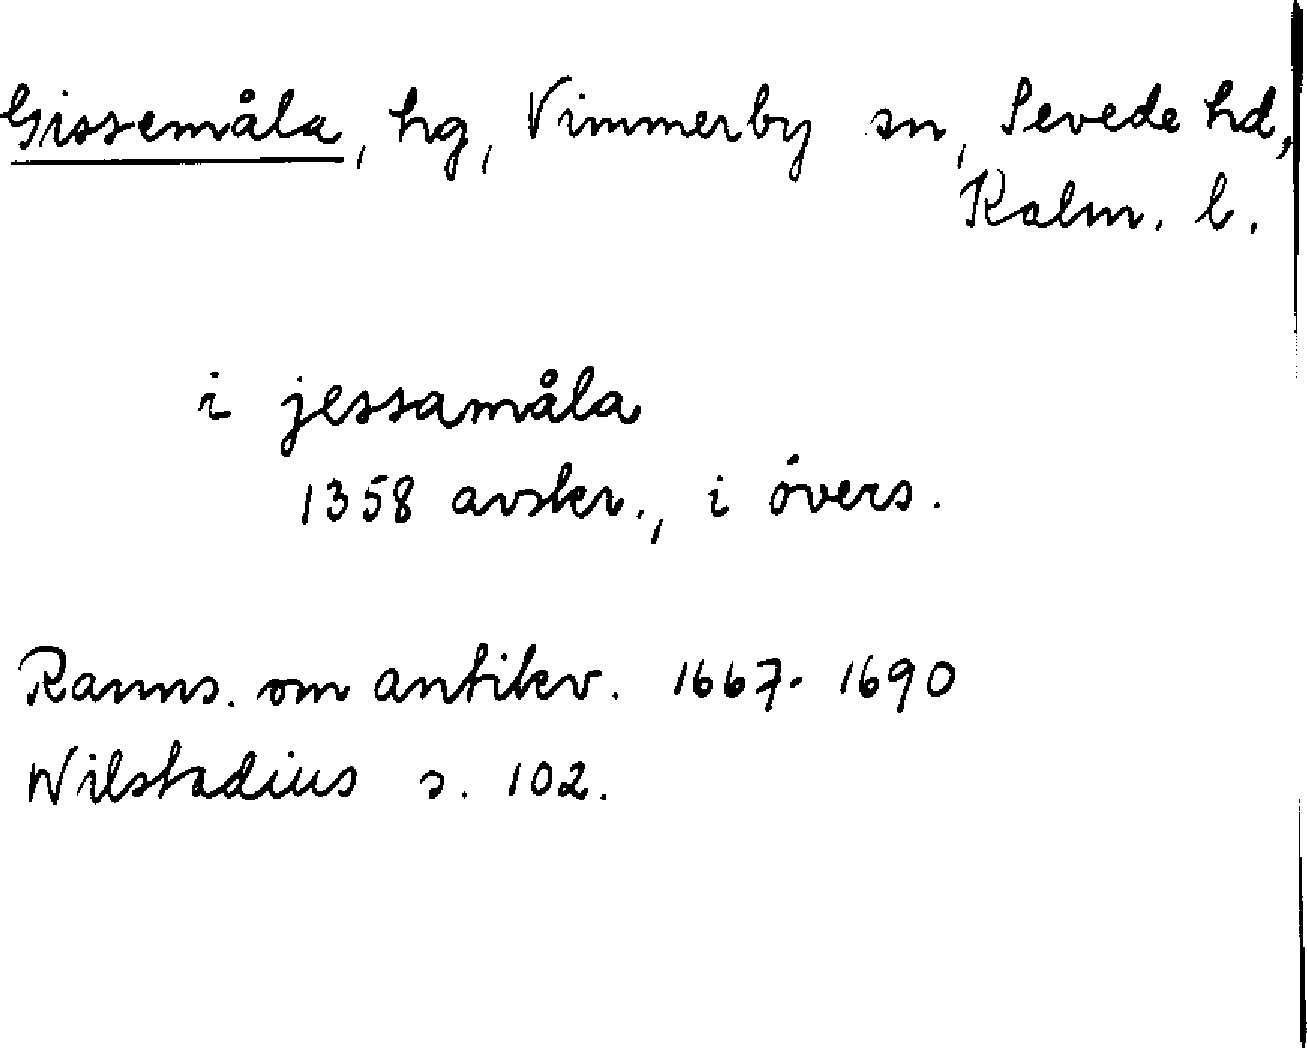 Gissemåla, hg, Vimmerby sn, Sevede hd,
Kalm. l.
i jessamåla
1358 avskr., i övers.
Ranns. om antikv. 1667-1690
Wilstadius s. 102.